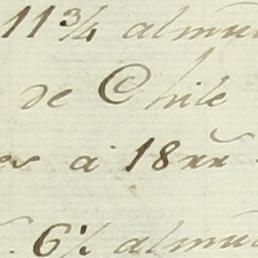 11 3/4 almu
de Chile
a 18
6 1/2 almu